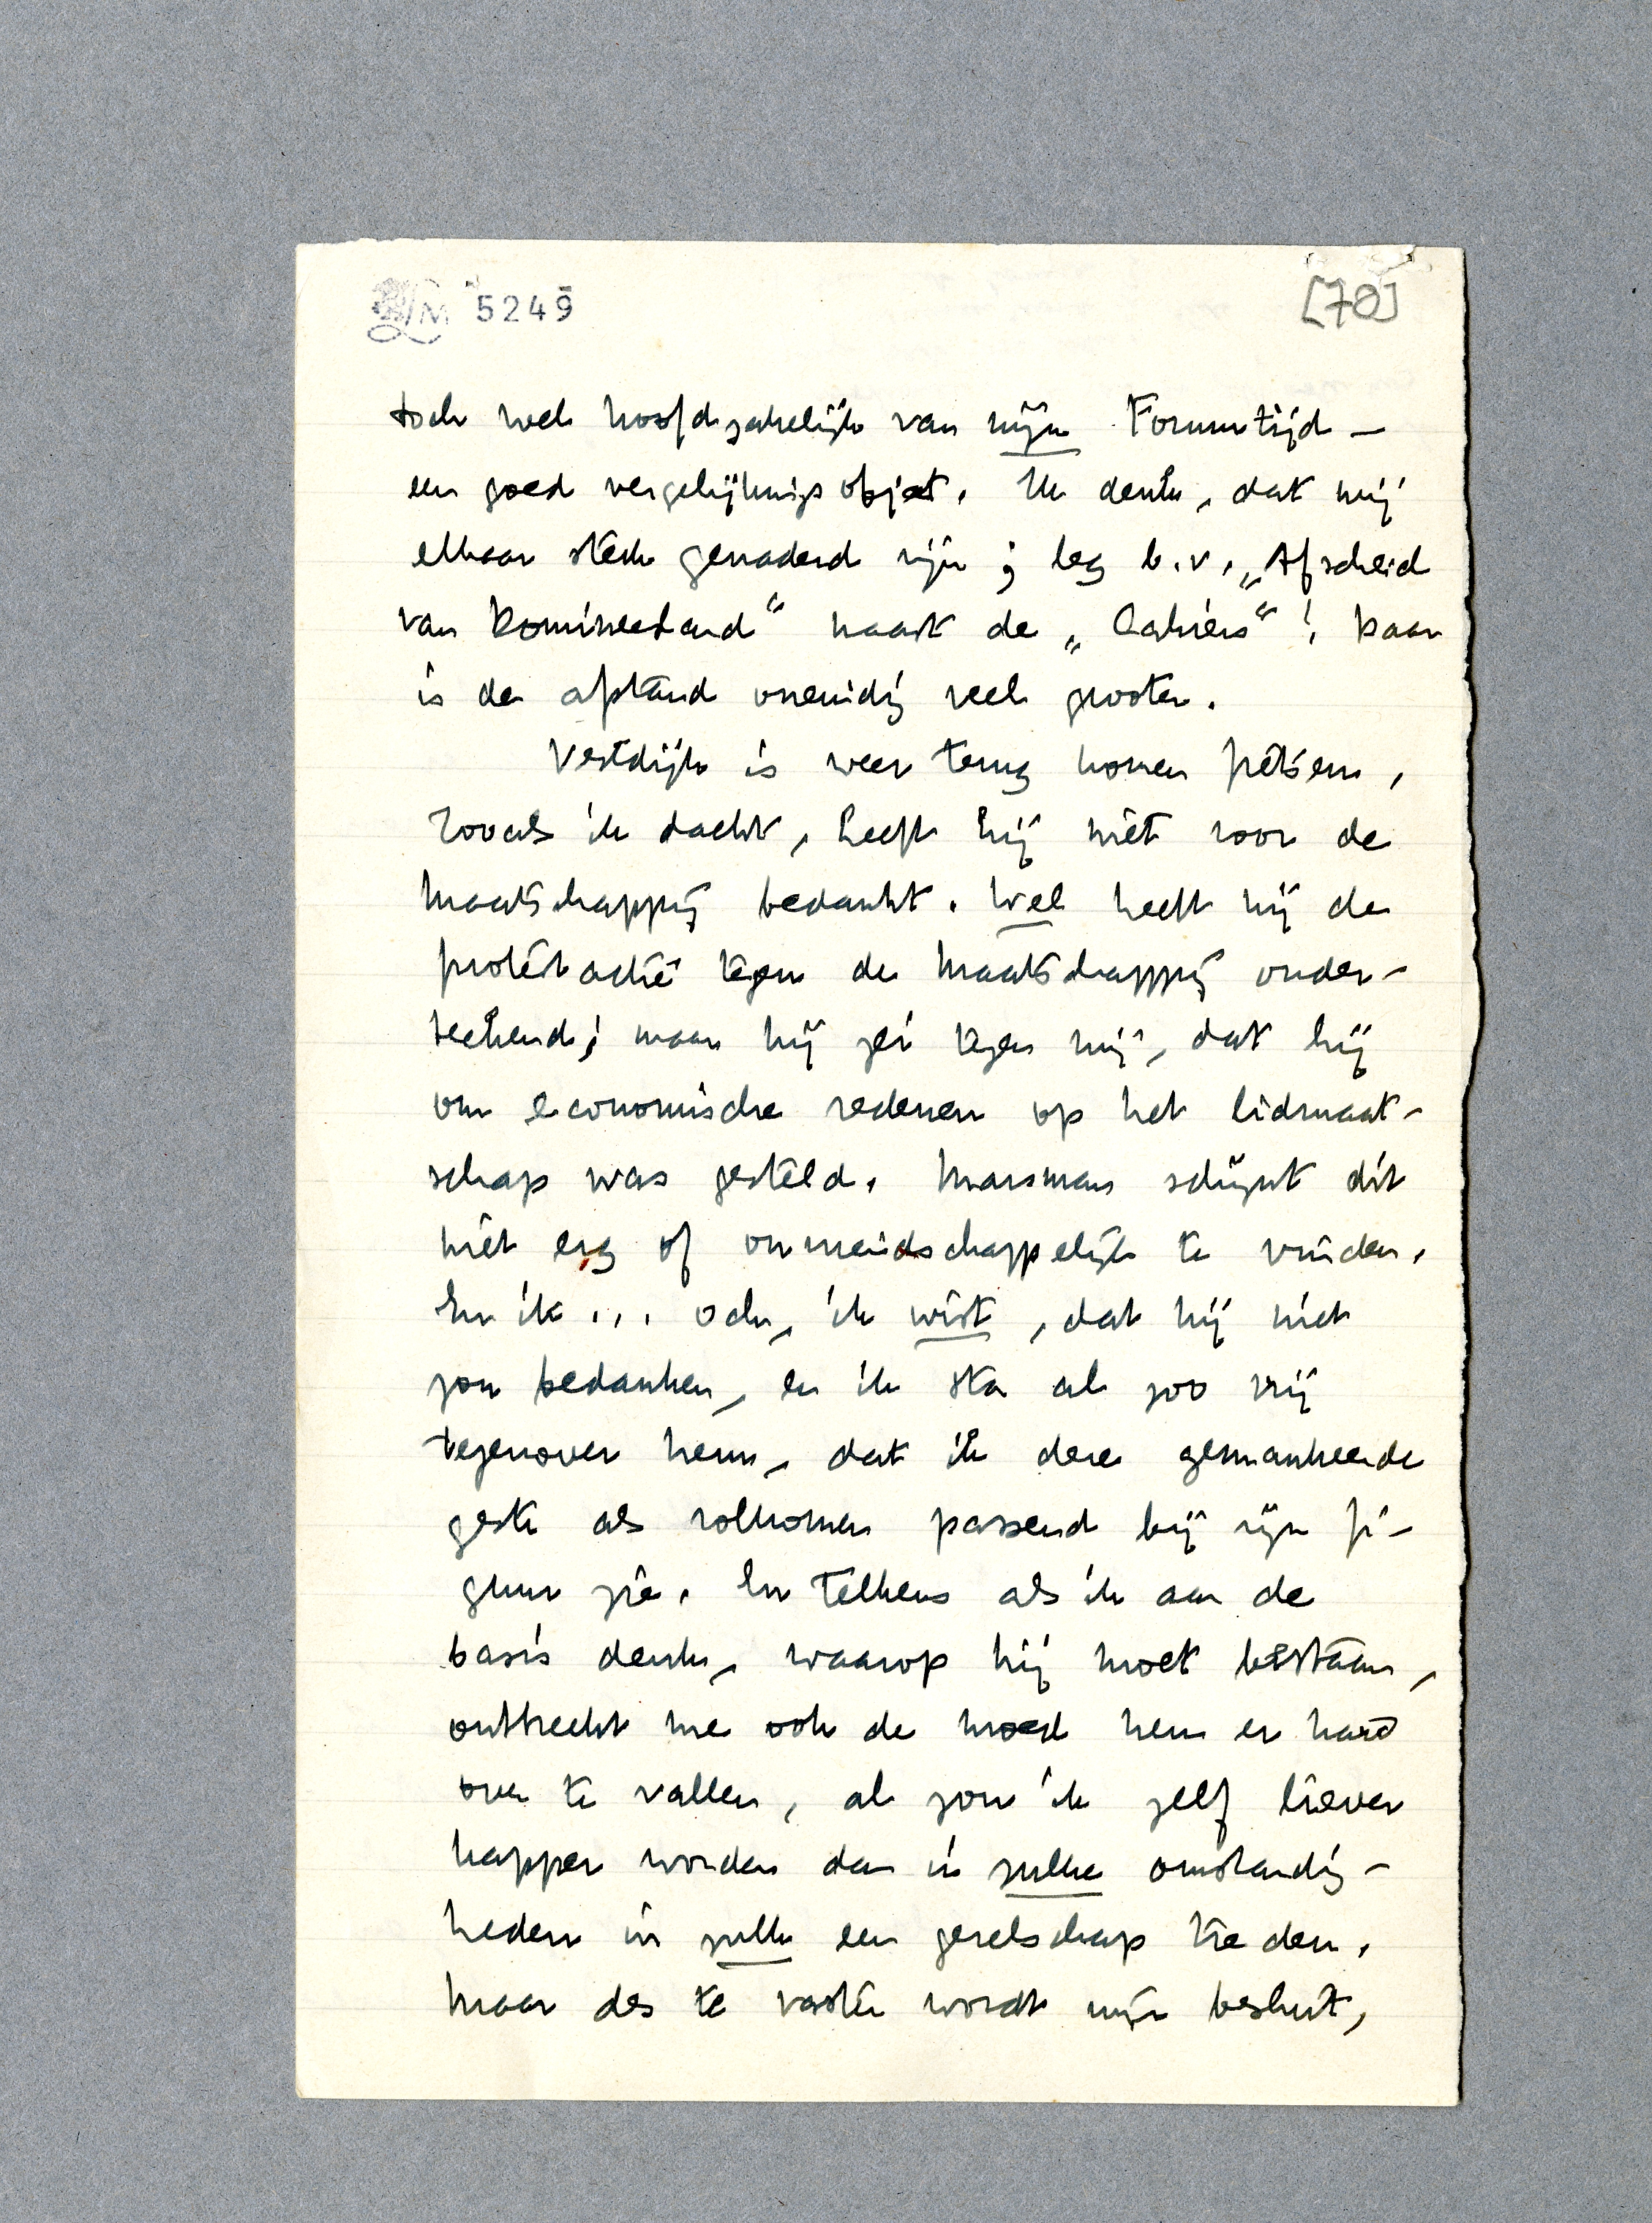 5249
[70]
toch wel hoofdzakelijk van mijn Forumtijd –
een goed vergelijkingsobject. Ik denk, dat wij
elkaar sterk genaderd zijn; leg b.v. „Afscheid
van Domineesland“ naast de „Cahiers“! Daar
is de afstand oneindig veel grooter.
Vestdijk is weer terug komen fietsen,
Zooals ik dacht, heeft hij niet voor de
Maatschappij bedankt. Wel heeft hij de
protestactie tegen de Maatschappij onder-
teekend; maar hij zei tegen mij, dat hij
om economische redenen op het lidmaat-
schap was gesteld. Marsman schijnt dit
niet erg of onvriendschappelijk te vinden.
En ik... och, ik wist, dat hij niet
zou bedanken, en ik sta al zoo vrij
tegenover hem, dat ik deze gemankeerde
geste als volkomen passend bij zijn fi-
guur zie. En telkens als ik aan de
basis denk, waarop hij moet bestaan,
ontbreekt me ook de moed hem er hard
over te vallen, al zou ik zelf liever
kapper worden dan in zulke omstandig-
heden in zulk een gezelschap treden.
Maar des te vaster wordt mijn besluit,